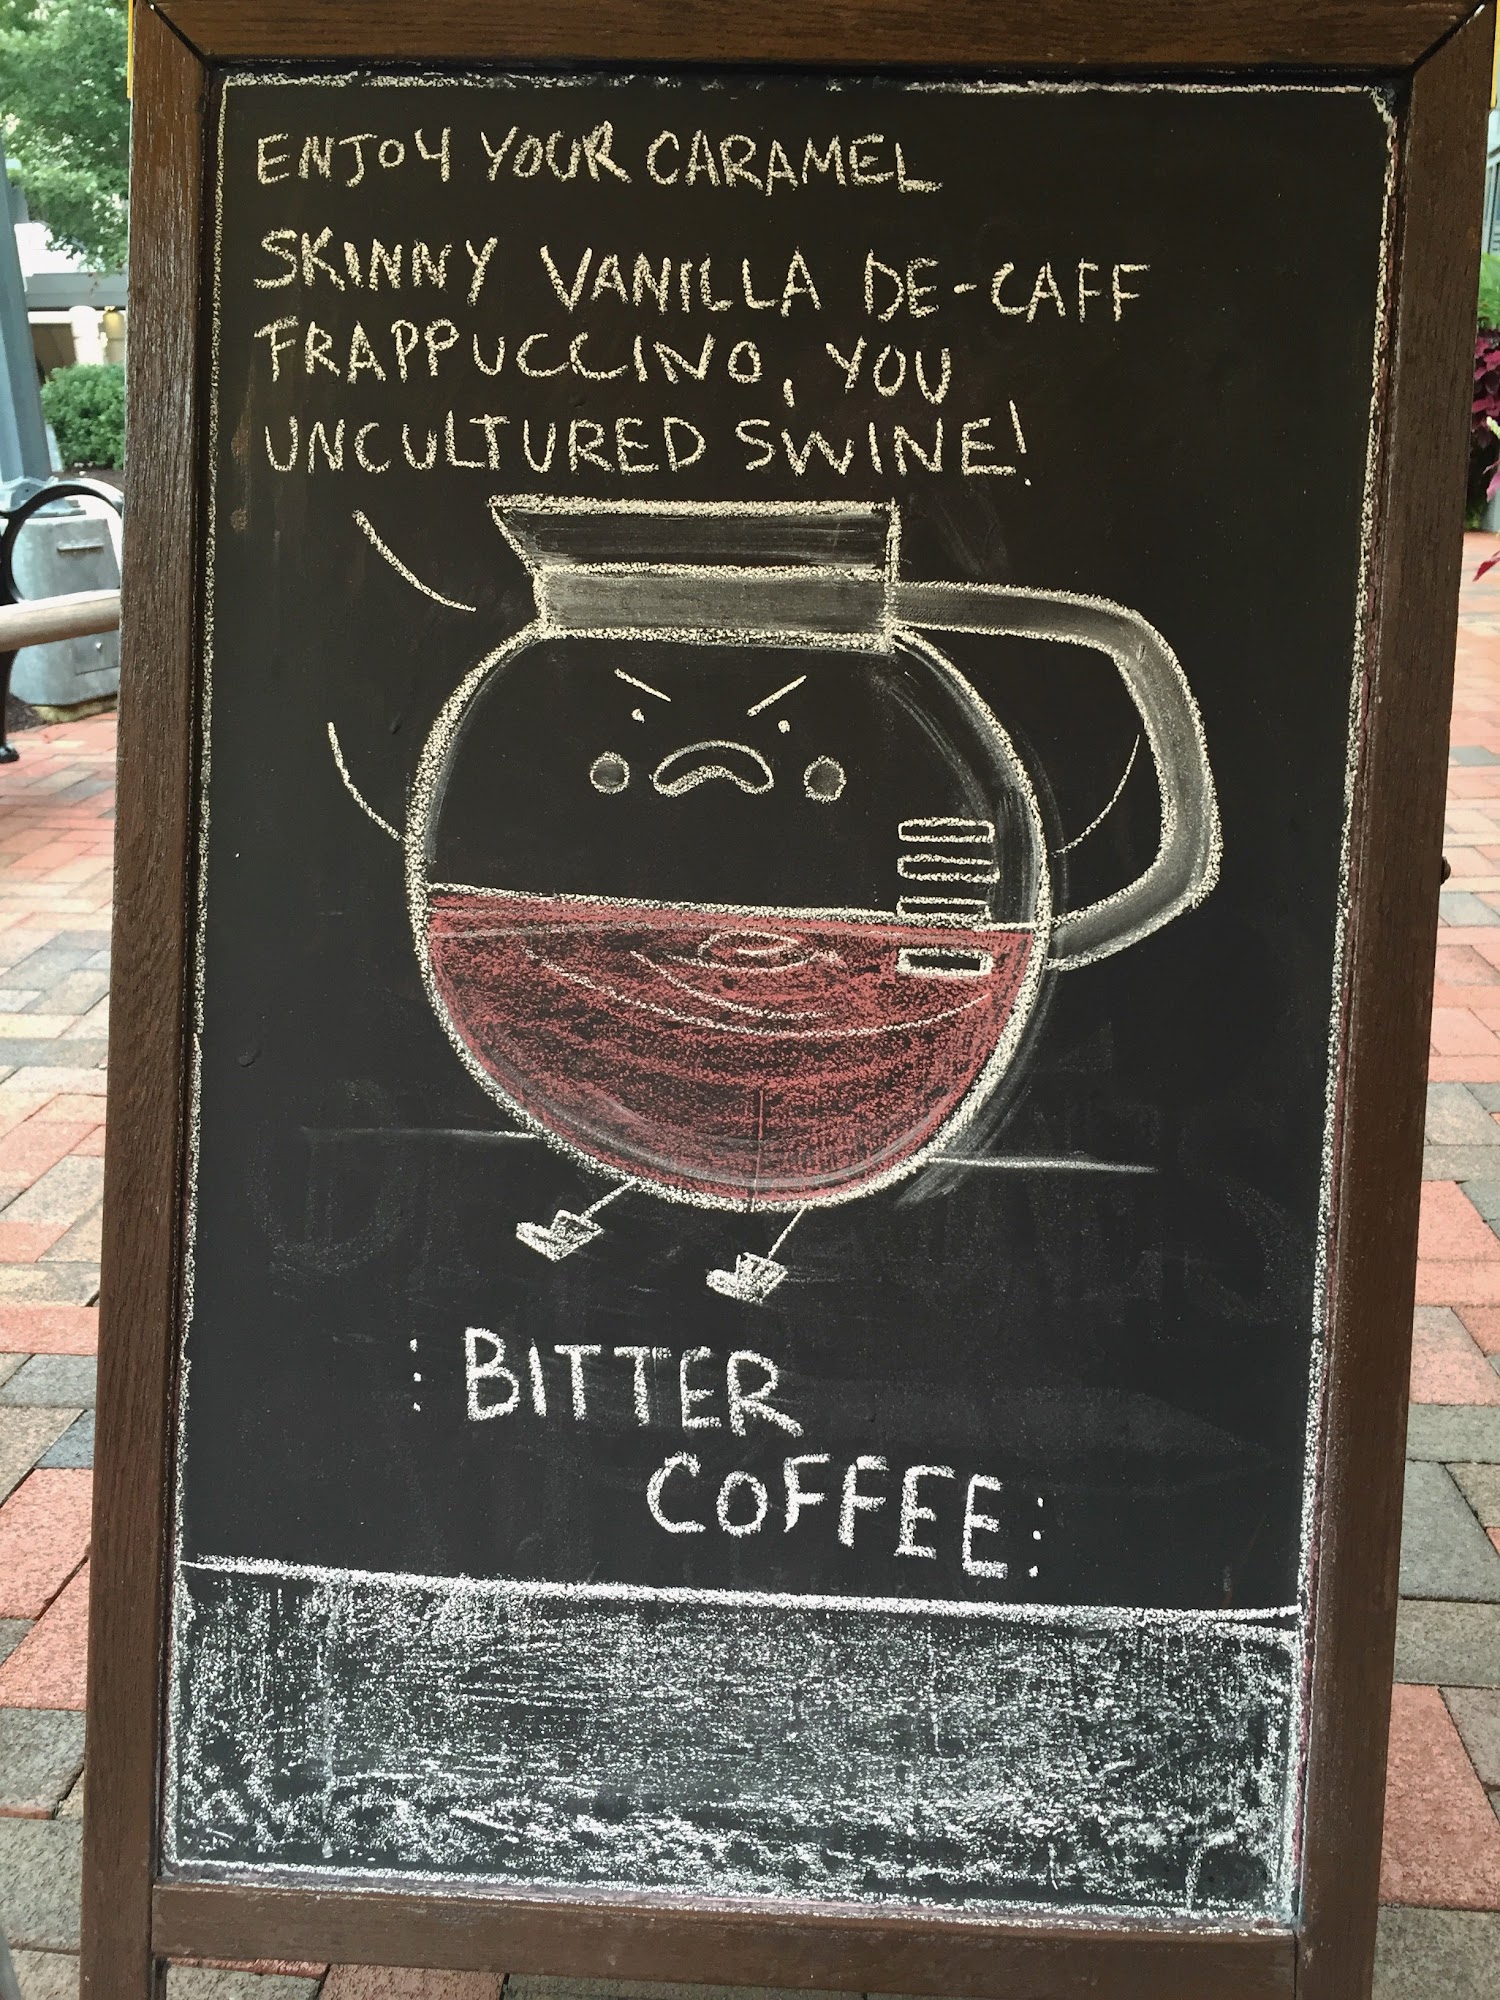 ENJOY YOUR CARAMEL
SKINNY VANILLA DE-CAFF
FRAPPUCCINO, YOU
UNCULTURED SWINE!
: BITTER
COFFEE :